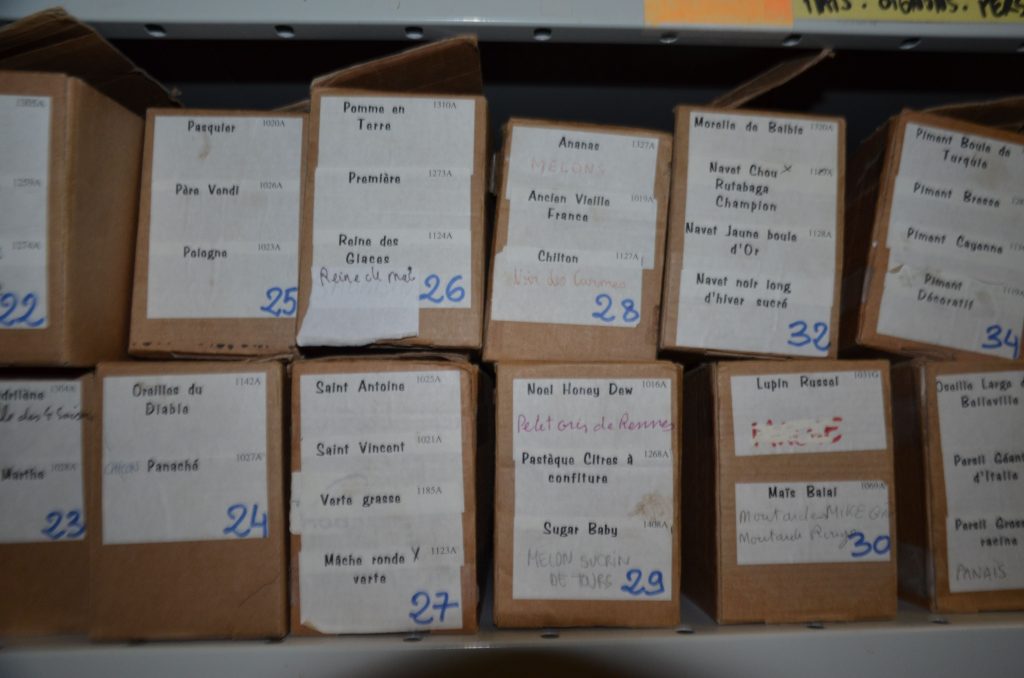 MAIS. OIGNONS. PERS
1259A
1274A
22
Pasquier 1020A
Père Vendi 1026A
Pologne 1023A
25
Pomme en 1310A
Terre
Première 1273A
Reine des 1124A
Glaces
Reine de mai
26
Ananas 1327A
MELONS
Ancien Vieille 1019A
France
Chilton 1127A
Noir des Carmes
28
Morelle de Balbis 1320A
Navet Chou x
Rutabaga
Champion
Navet Jaune boule 1128A
d'Or
Navet noir long
d'hiver sucré
32
Piment Boule de
Turquie
Piment Bresse
Piment Cayenne
Piment
Décoratif
34
drilène
de des 4 Saisons
Marthe 1028A
23
Oreilles du 1142A
Diable
Panaché 1027A
24
Saint Antoine 1025A
Saint Vincent 1021A
Verte grasse 1185A
Mâche ronde x 1123A
verte
27
Noel Honey Dew 1016A
Petit Gris de Rennes
Pastèque Citres à 1268A
confiture
Sugar Baby 1408A
MELON SUCRIN
DE TOURS
29
Lupin Russel 1031G
Maïs Balai 1069A
Moutarde MIKE
Moutarde Rouge
30
Oseille Large
Belleville
Persil Géant
d'Italie
Persil Gross
racine
PANAIS